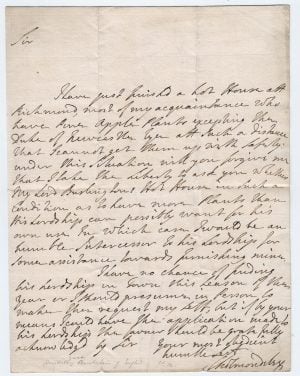 Sir
I have just finished a hot House att
Richmond most of my acquaintance who
have Pine Apple Plants excepting the
Duke of are att such a distance
that I cannot get them up with safety.
under this situation will you forgive me
that I take the Liberty to ask you whether
My Lord Hot House in such a
condition as to have more Plants than
His Lordship can possibly want for his
own use in which case I would be an
humble Intercessor to his Lordship for
some assistance towards furnishing mine
I have no chance of finding
his Lordship in Town this Season of the
Year or I should presume in Person to
make the request my self, but if by your
means I could have the application made to
his Lordship the favour should be gratefully
acknowledg'd by Sir
your most obedient
humble
Cholmondeley